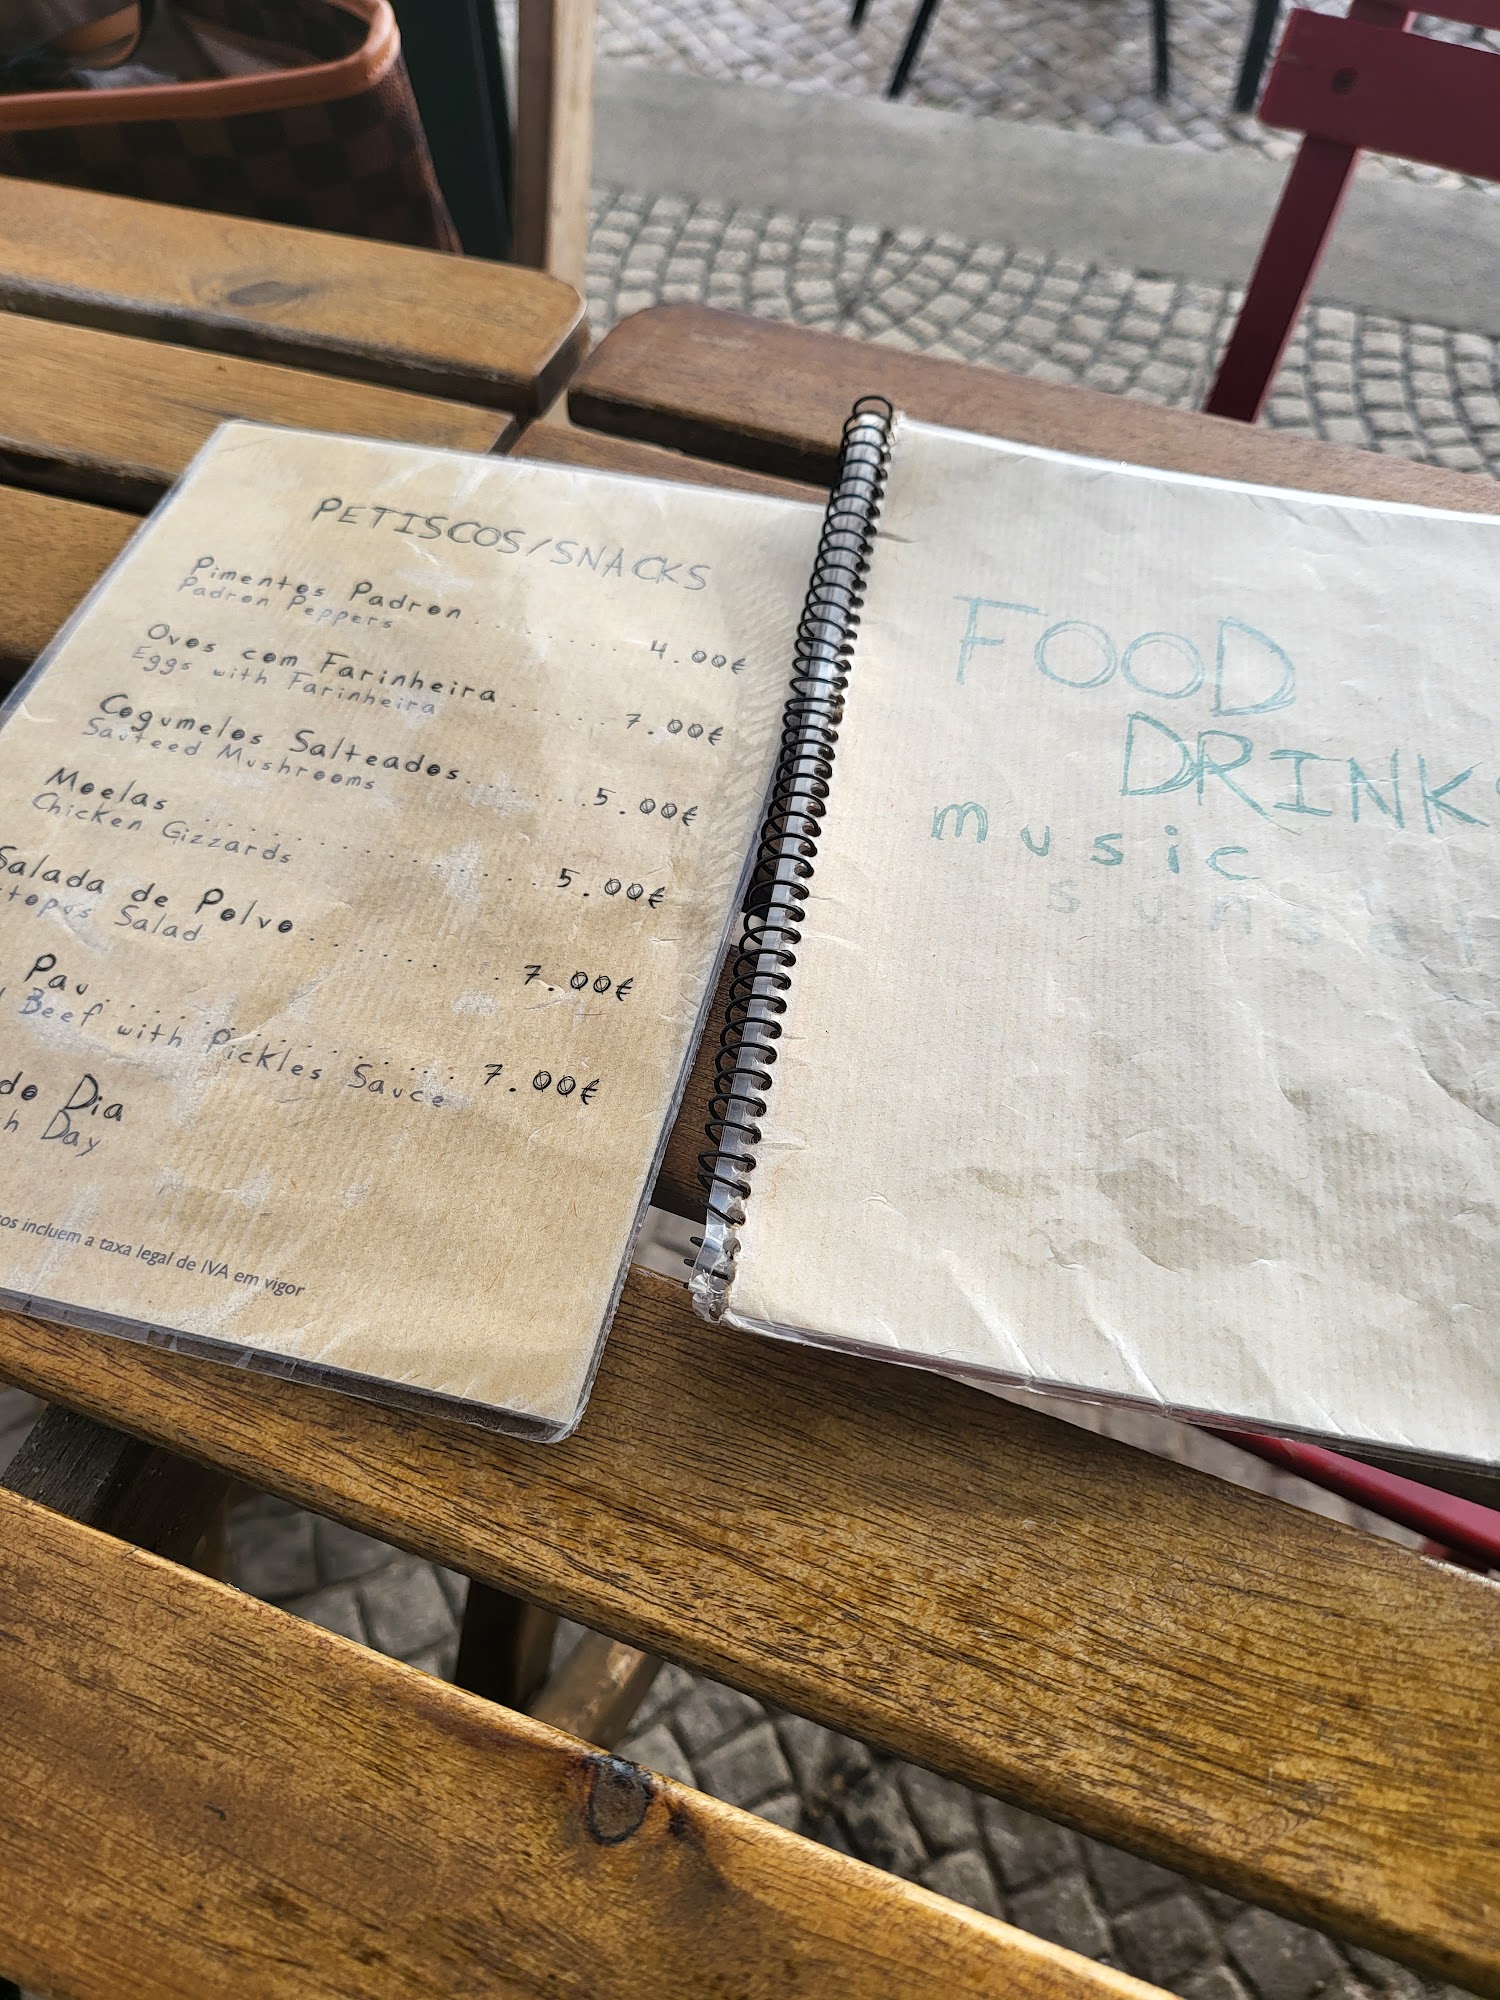 PETISCOS/SNACKS
Pimentos Padron ........... 4.00€
Padron Peppers
Ovos com Farinheira ....... 7.00€
Eggs with Farinheira
Cogumelos Salteados.......... 5.00€
Sauteed Mushrooms
Moelas ..................... 5.00€
Chicken Gizzards
Salada de Polvo ............ 7.00€
Salad
Pau.................... 7.00€
Beef with Pickles Sauce
do Dia
Day
incluem a taxa legal de IVA em vigor
FOOD
DRINKS
music